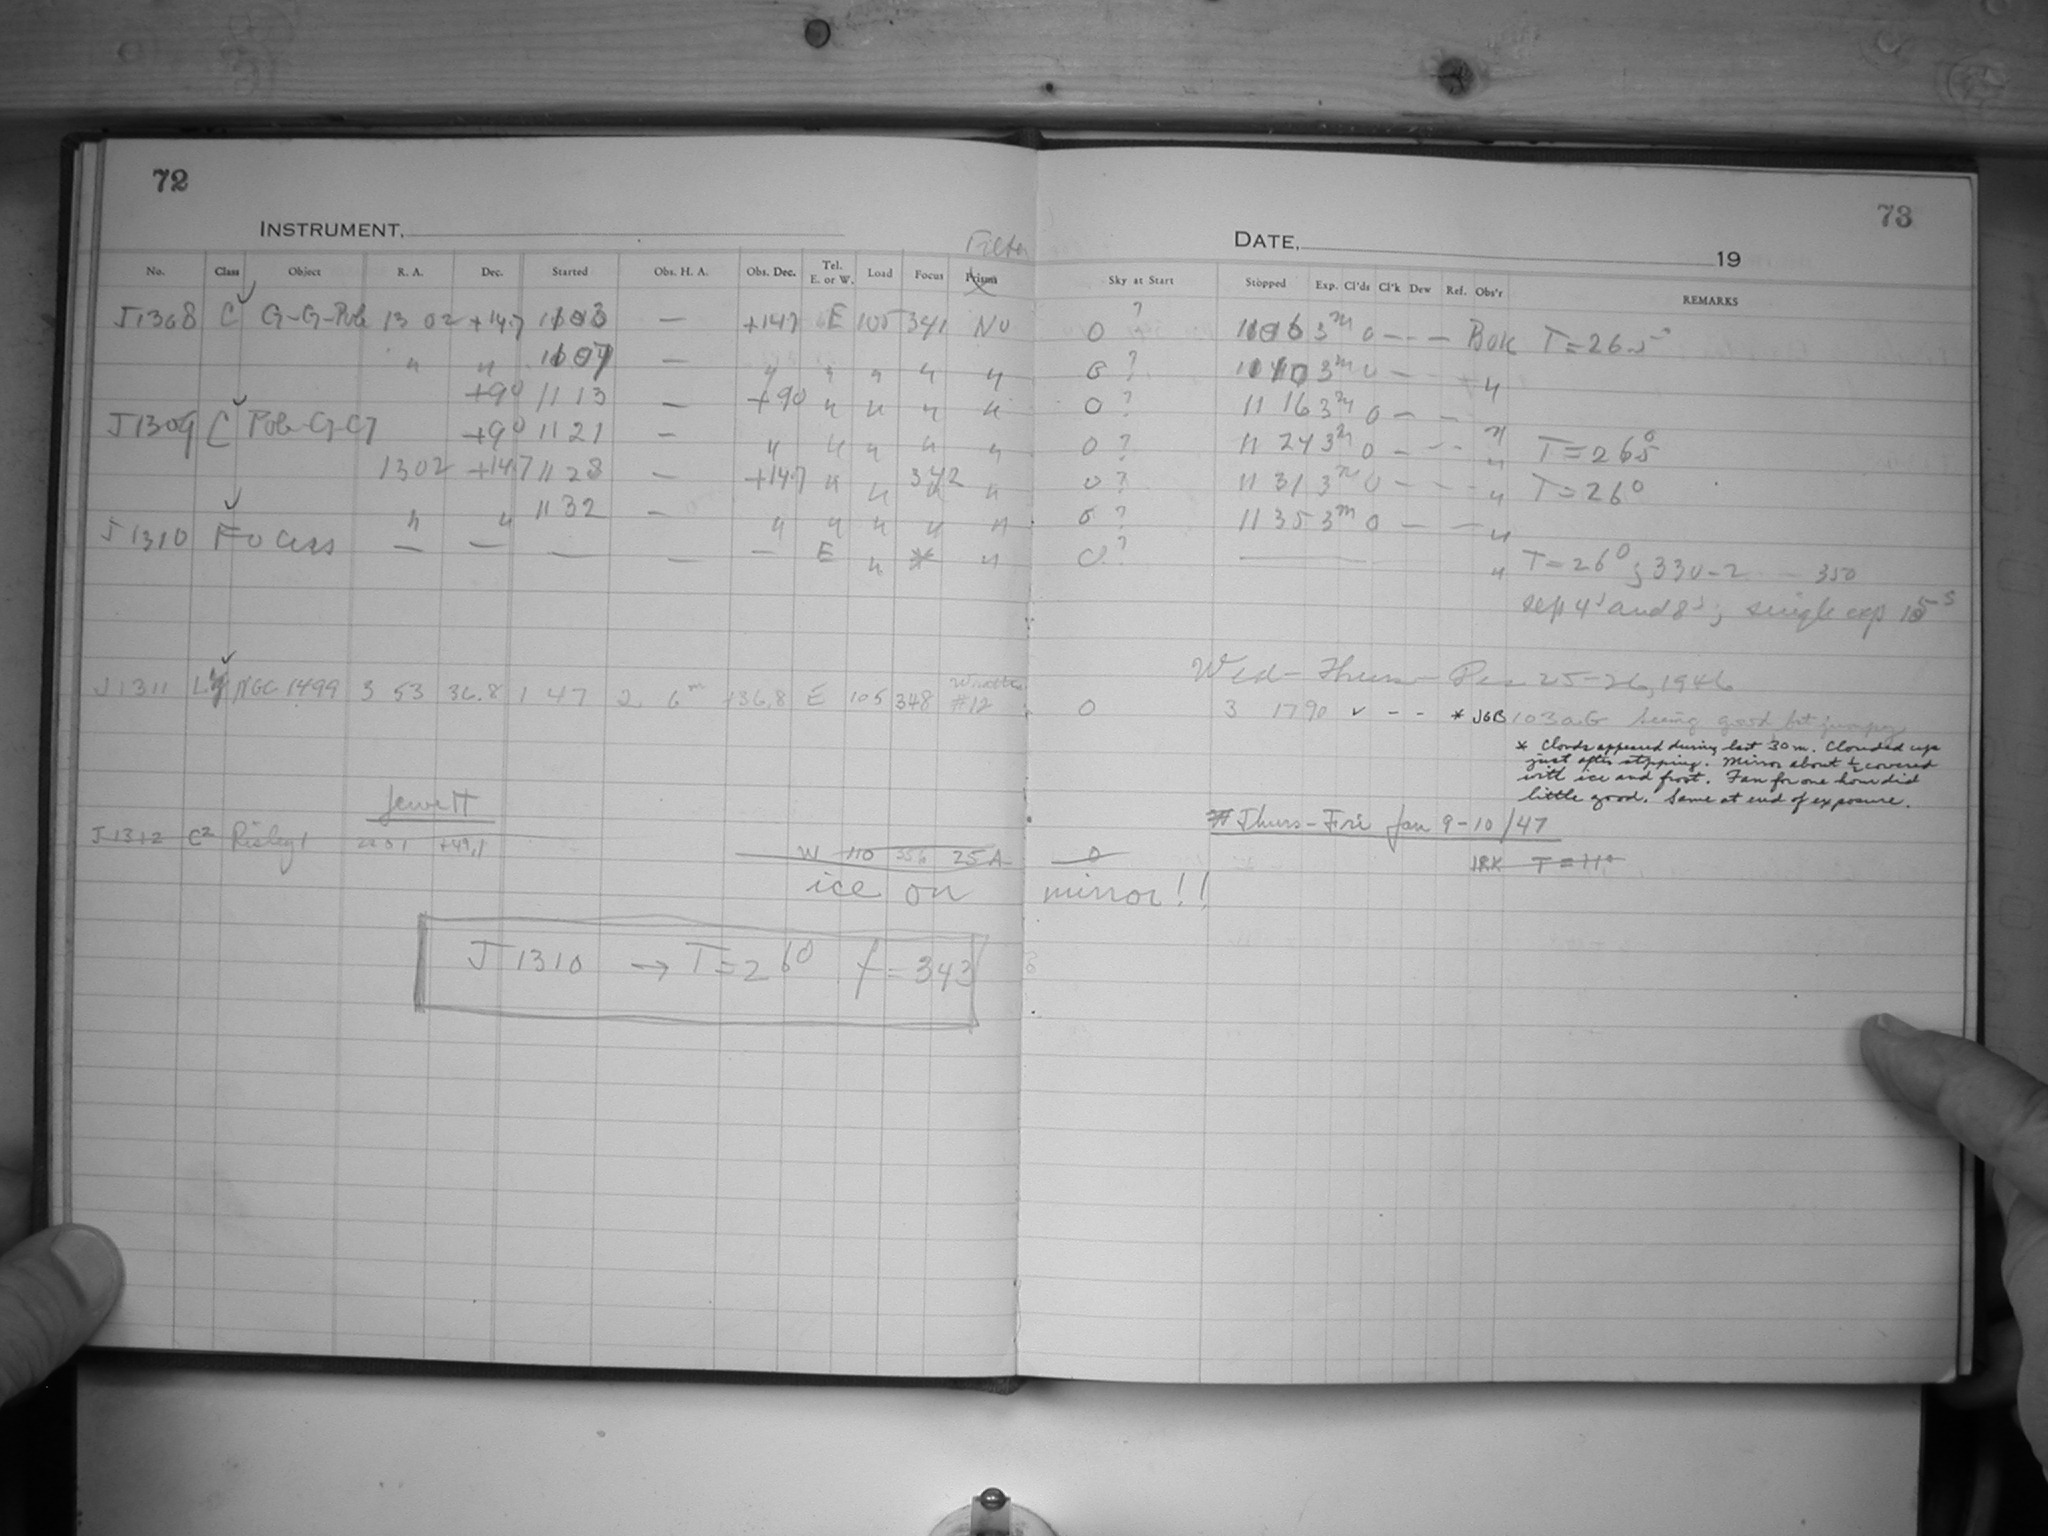 72
73
INSTRUMENT,
DATE, 19
Filter
No. Class Object R. A. Dec. Started Obs. H. A. Obs. Dec. Tel. E. or W. Load Focus Prism Sky at Start Stopped Exp. Cl'ds Cl'k Dew Ref. Obs'r REMARKS
J1308 C G-G-Pole 13 02 +14.7 11 03 — +14.7 E 105 341 No 0 ? 11 06 3m 0 - - - Bok T=26.5°
" " 11 07 — " " " " " 0 ? 11 10 3m 0 — "
+90 11 13 — +90 " " " " 0 ? 11 16 3m 0 — — "
J1309 C Pole-G-G +90 11 21 — " " " " " 0 ? 11 24 3m 0 - - - " T=26.5°
1302 +14.7 11 28 — +14.7 " " 342 " 0 ? 11 31 3m 0 - - - " T=26°
" " 11 32 — " " " " " 0 ? 11 35 3m 0 — — "
J1310 Focus — — — — — E " * " 0 ? — " T=26°; 330-2 -- 350
sep 4' and 8'; single exp 15s
Wed-Thurs- Dec 25-26, 1946
J1311 NGC 1499 3 53 36.8 1 47 2 6m +36.8 E 105 348 Wratten #12 0 3 17 90 ✓ - - * JGB 103aG Seeing good but jumpy
* Clouds appeared during last 30 m. Clouded up
just after stopping. Mirror about ½ covered
with ice and frost. Fan for one hour did
little good. Same at end of exposure.
Jewett
Thurs-Fri Jan 9-10/47
J1312 C2 Risley 1 +49.1 W 110 356 25A 0 T=11°
ice on mirror!!
J1310 → T=26° f=343